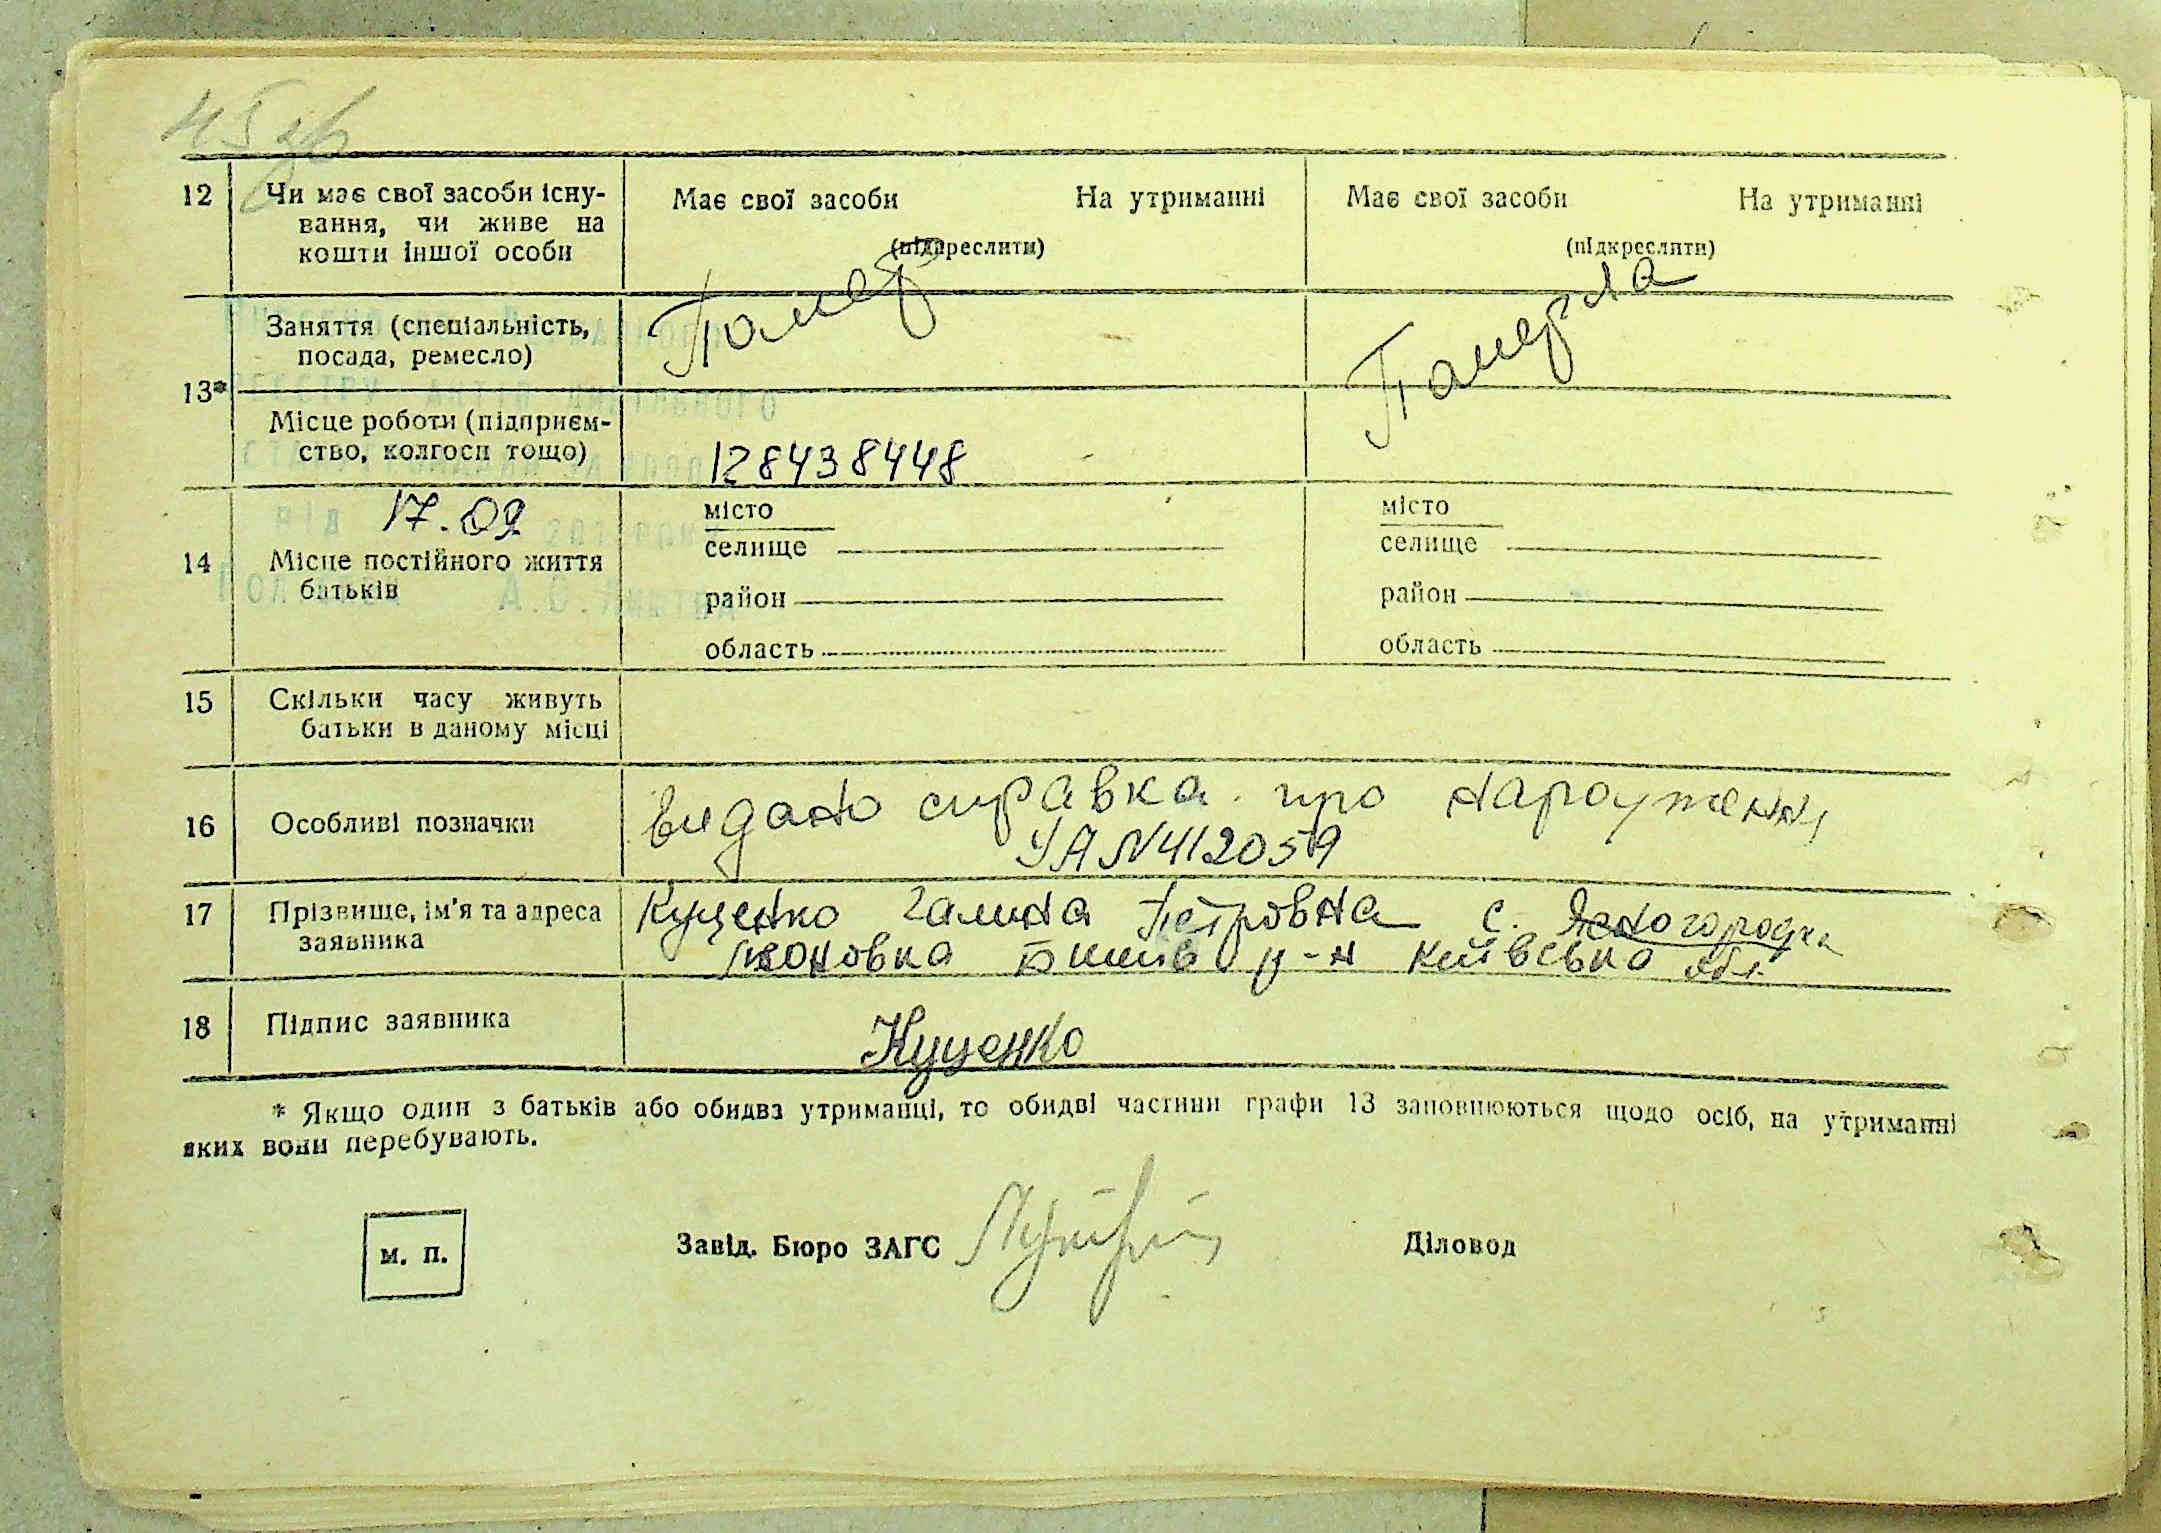 45зв
12 Чи має свої засоби існу-
вання, чи живе на
кошти іншої особи
Має свої засоби На утриманні
(підкреслити)
Має свої засоби На утриманні
(підкреслити)
13*
Заняття (спеціальність,
посада, ремесло)
Помер
Померла
Місце роботи (підприєм-
ство, колгосп тощо)
128438448
17.09
14 Місце постійного життя
батьків
місто
селище
район
область
місто
селище
район
область
15 Скільки часу живуть
батьки в даному місці
16 Особливі позначки
Видано справка про народження
УА N412059
17 Прізвище, ім'я та адреса
заявника
Куценко Галина Петровна с. Ясногородка
р-н Київсько обл.
18 Підпис заявника
Куценко
* Якщо один з батьків або обидва утриманці, то обидві частини графи 13 заповнюються щодо осіб, на утриманні
яких вони перебувають.
м. п.
Завід. Бюро ЗАГС
Діловод